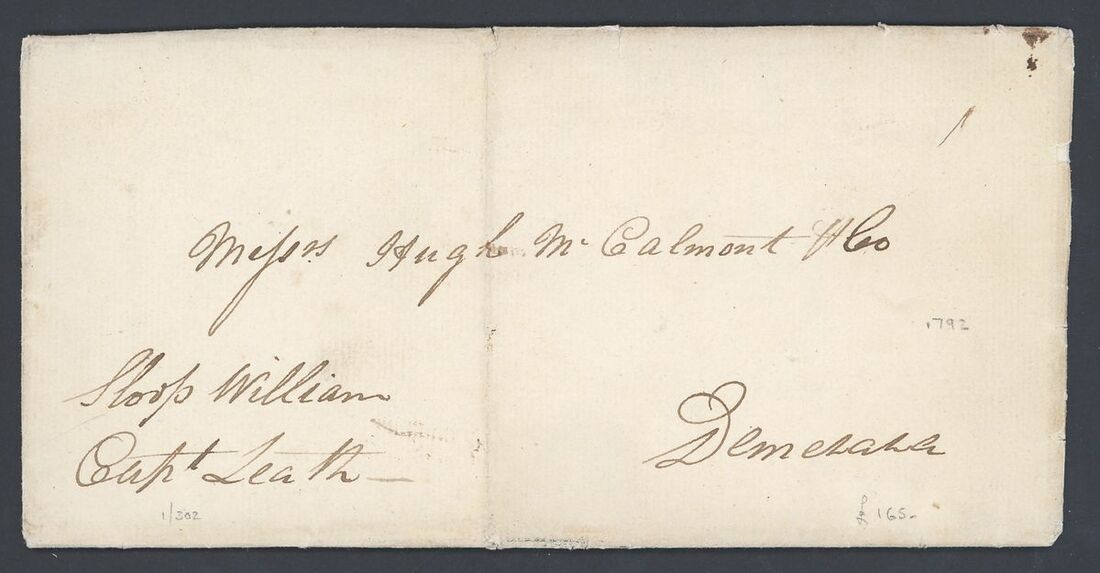 Messrs Hugh Mc Calmont & Co
1792
Sloop William
Capt Leath
Demerara
1/302
£165-